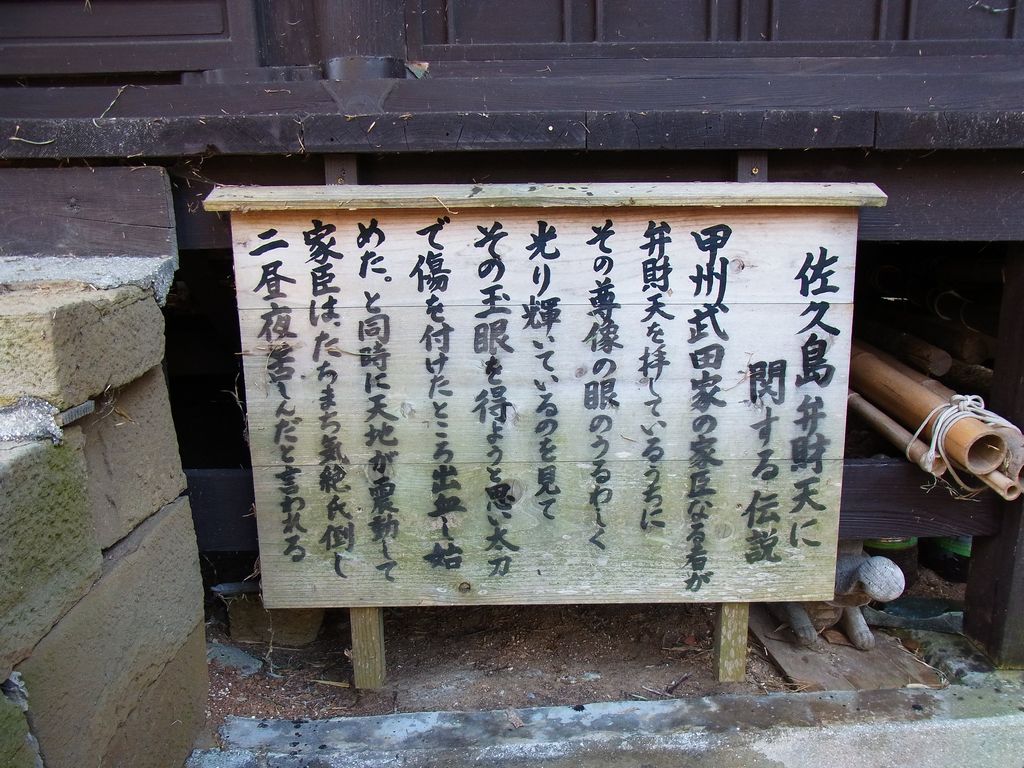 佐久島弁財天に
関する伝説
甲州武田家の家臣なる者が
弁財天を拝しているうちに
その尊像の眼のうるわしく
光り輝いているのを見て
その玉眼を得ようと思い太刀
で傷を付けたところ出血し始
めた。と同時に天地が震動して
家臣は、たちまち気絶氏倒し
二昼夜苦しんだと言われる